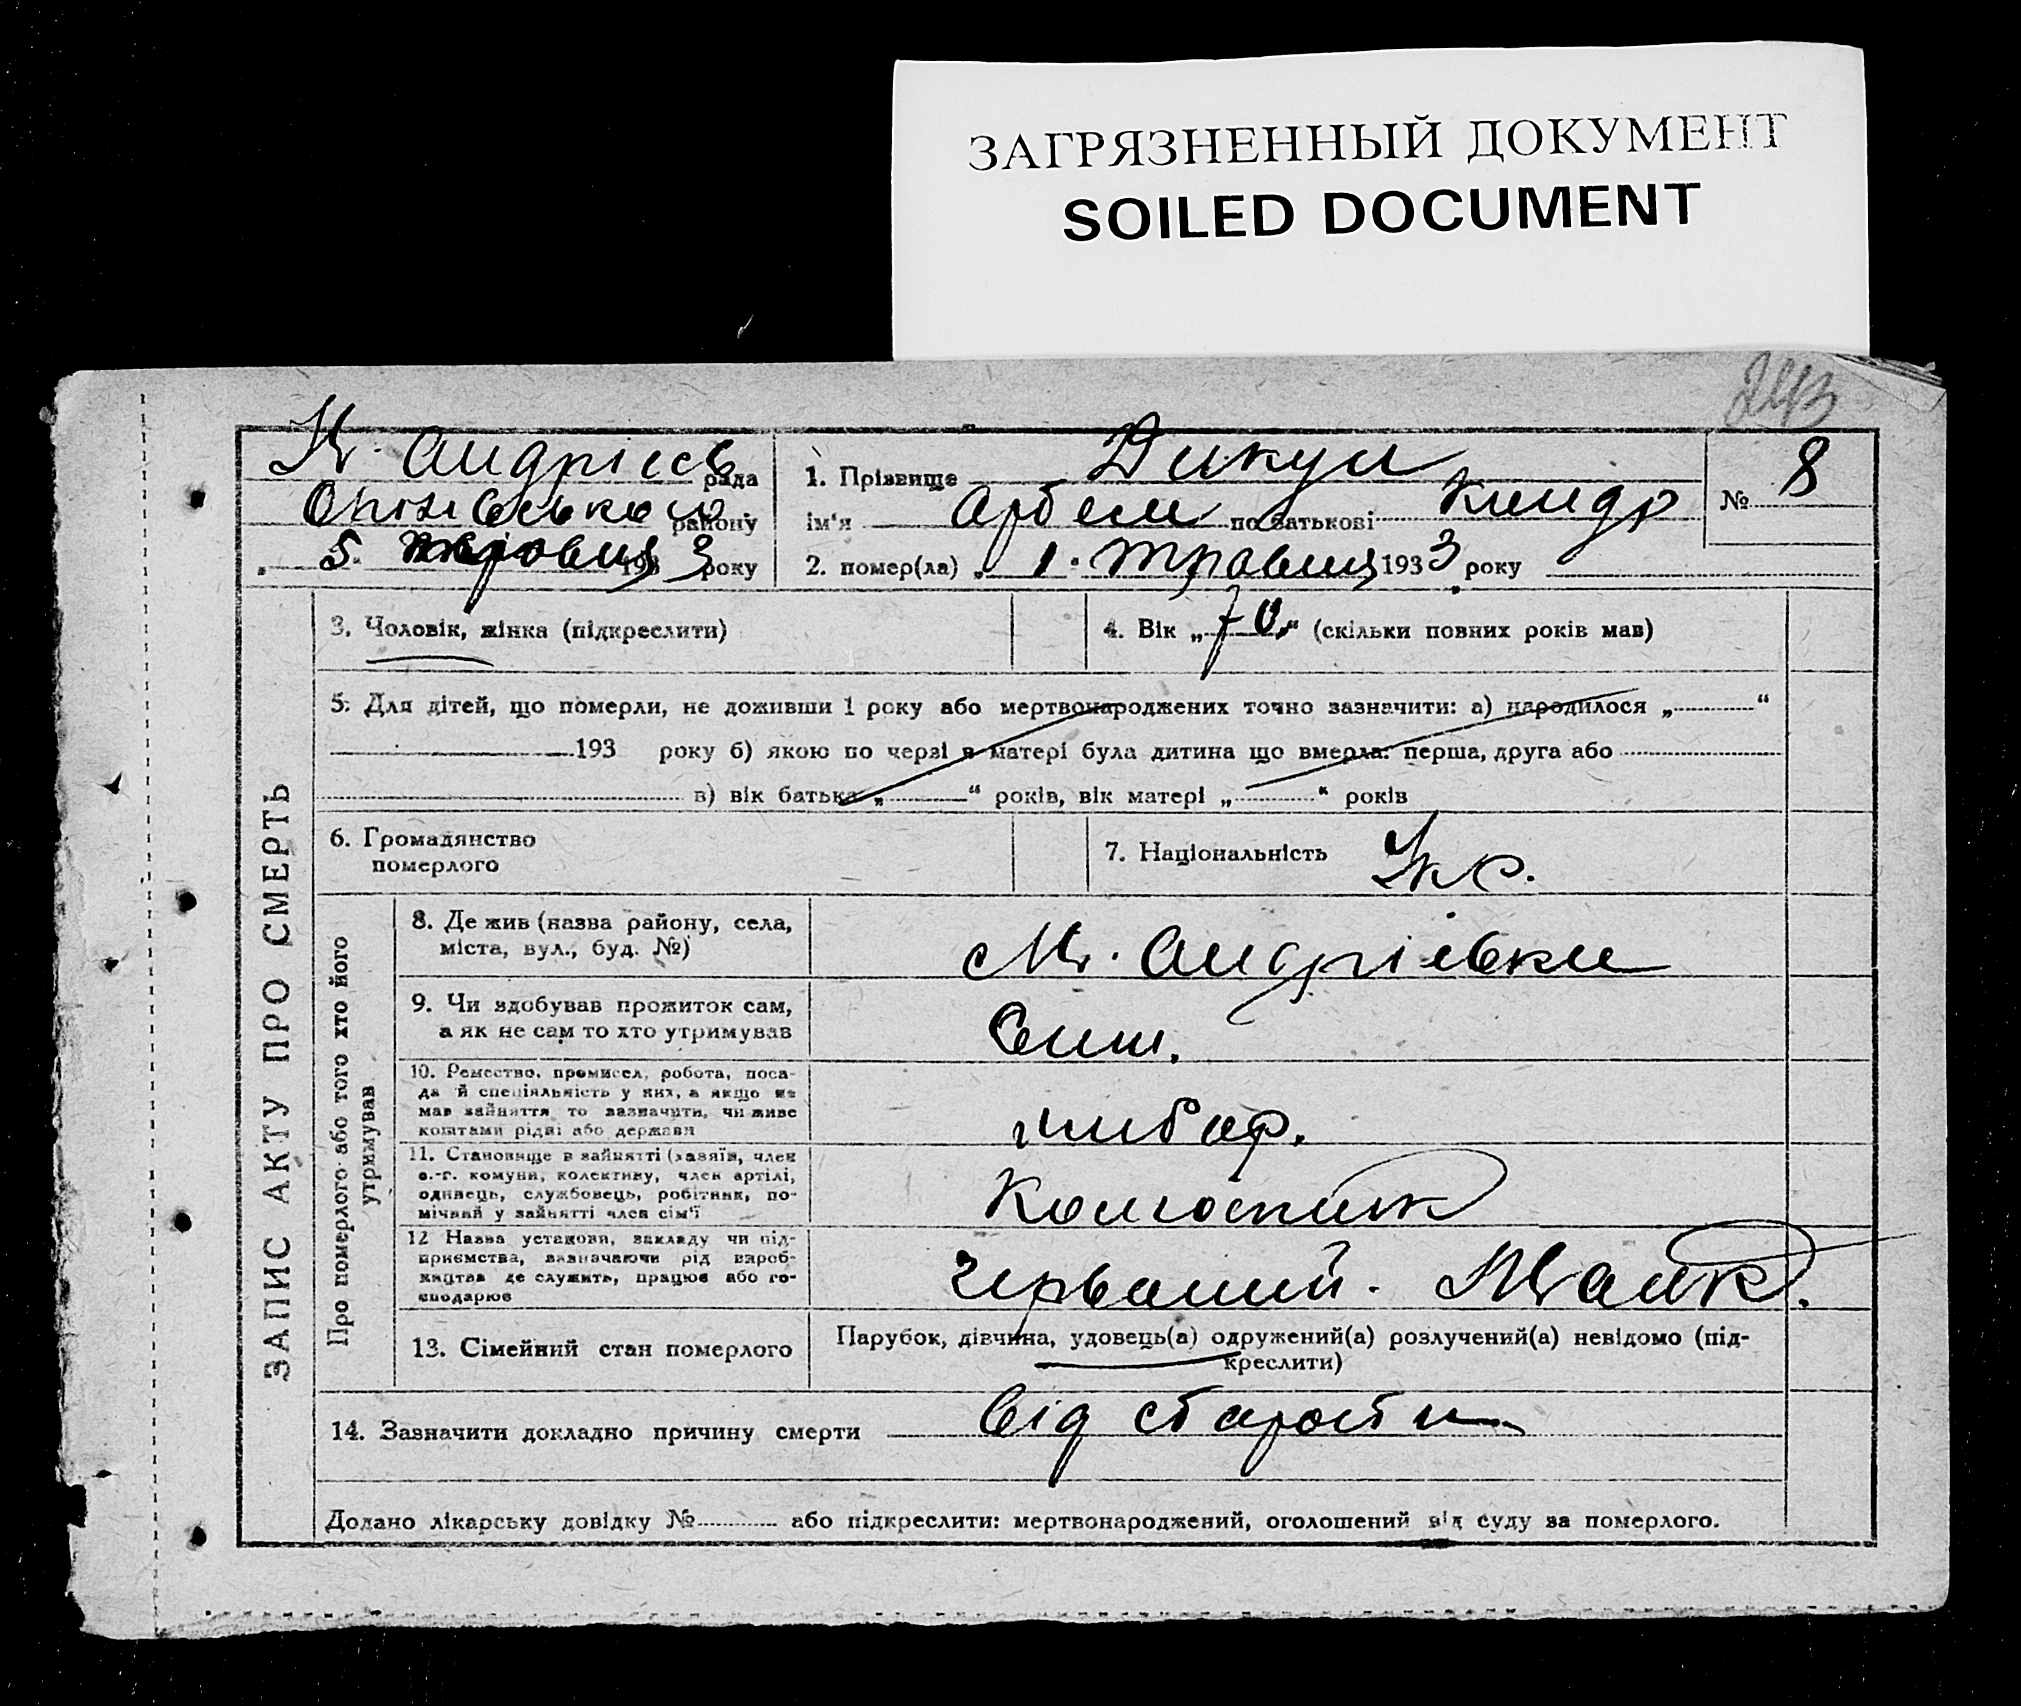 ЗАГРЯЗНЕННЫЙ ДОКУМЕНТ
SOILED DOCUMENT
243
рада
району
5. 193 3 року
1. Прізвище Дикун
ім'я по батькові
2. помер(ла) „ 1. травня 1933 року
№ 8
ЗАПИС АКТУ ПРО СМЕРТЬ
3. Чоловік, жінка (підкреслити)
4. Вік „70“ (скільки повних років мав)
5. Для дітей, що померли, не доживши 1 року або мертвонароджених точно зазначити: а) народилося „ “
193 року б) якою по черзі в матері була дитина що вмерла: перша, друга або
в) вік батька „ “ років, вік матері „ “ років
6. Громадянство
померлого
7. Національність Укр.
Про померлого або того хто його
утримував
8. Де жив (назва району, села,
міста, вул., буд. №)
М. Андріївка
9. Чи здобував прожиток сам,
а як не сам то хто утримував
10. Ремество, промисел, робота, поса-
да й спеціяльність у них, а якщо не
мав зайняття то зазначити, чи живе
коштами рідні або держави
хлібор.
11. Становище в зайнятті (хазяїн, член
с.-г. комуни, колективу, член артілі,
одинець, службовець, робітник, по-
мічний у зайнятті член сім'ї
Колгоспник
12 Назва установи, закладу чи під-
приємства, зазначаючи рід вироб-
ництва де служить, працює або го-
сподарює
Червоний. Маяк.
13. Сімейний стан померлого
Парубок, дівчина, удовець(а) одружений(а) розлучений(а) невідомо (під-
креслити)
14. Зазначити докладно причину смерти Від старости
Додано лікарську довідку № або підкреслити: мертвонароджений, оголошений від суду за померлого.